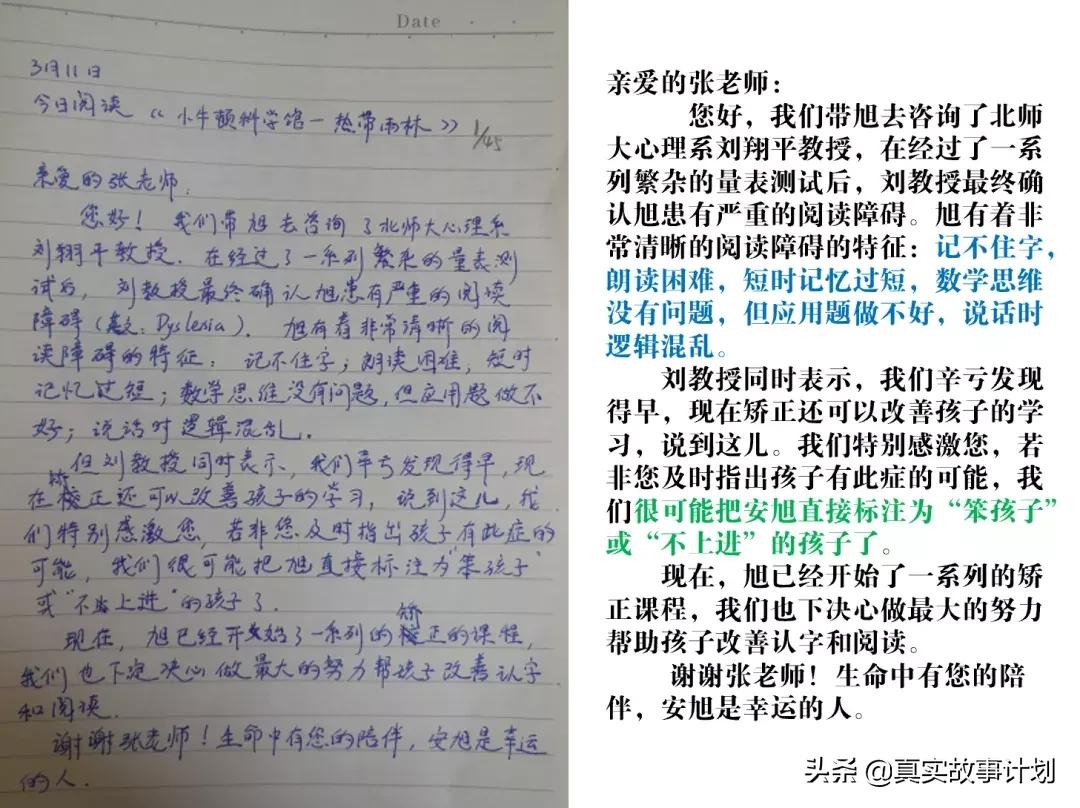 Date
3月11日
今日阅读《小牛顿科学馆－热带雨林》 1/45
亲爱的张老师：
您好！我们带旭去咨询了北师大心理系
刘翔平教授．在经过了一系列繁杂的量表测
试后，刘教授最终确认旭患有严重的阅读
障碍（英文：Dyslexia）．旭有着非常清晰的阅
读障碍的特征：记不住字；朗读困难，短时
记忆过短；数学思维没有问题，但应用题做不
好；说话时逻辑混乱．
但刘教授同时表示，我们辛亏发现得早，现
在矫正还可以改善孩子的学习，说到这儿，我
们特别感激您，若非您及时指出孩子有此症的
可能，我们很可能把旭直接标注为“笨孩子”
或“不上进”的孩子了．
现在，旭已经开始了一系列的矫正的课程，
我们也下定决心做最大的努力帮孩子改善认字
和阅读．
谢谢张老师！生命中有您的陪伴，安旭是幸运
的人．
亲爱的张老师：
您好，我们带旭去咨询了北师
大心理系刘翔平教授，在经过了一系
列繁杂的量表测试后，刘教授最终确
认旭患有严重的阅读障碍。旭有着非
常清晰的阅读障碍的特征：记不住字，
朗读困难，短时记忆过短，数学思维
没有问题，但应用题做不好，说话时
逻辑混乱。
刘教授同时表示，我们辛亏发现
得早，现在矫正还可以改善孩子的学
习，说到这儿。我们特别感激您，若
非您及时指出孩子有此症的可能，我
们很可能把安旭直接标注为“笨孩子”
或“不上进”的孩子了。
现在，旭已经开始了一系列的矫
正课程，我们也下决心做最大的努力
帮助孩子改善认字和阅读。
谢谢张老师！生命中有您的陪
伴，安旭是幸运的人。
头条 @真实故事计划